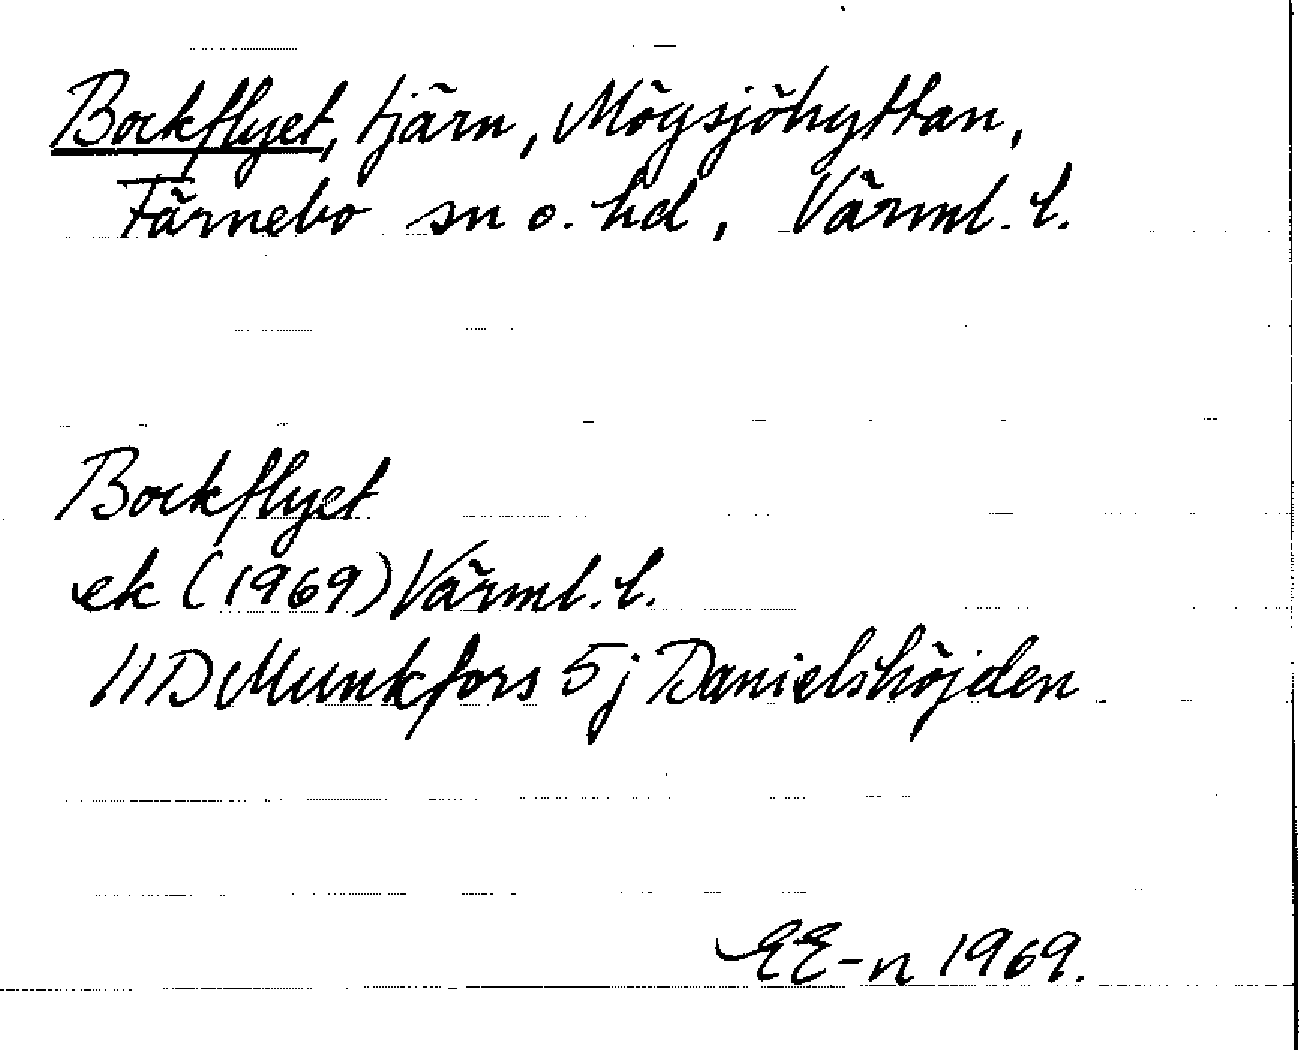 Bockflyet, tjärn, Mögsjöhyttan,
Färnebo sn o. hd, Värml. l.
Bockflyet
ek (1969) Värml. l.
11D Munkfors 5j Danielshöjden
EE-n 1969.